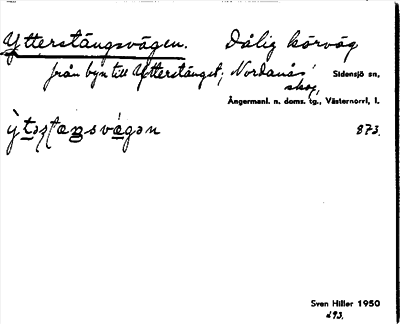 Ytterstängsvägen. Dålig körväg
från byn till Ytterstänget; Nordanås' Sidensjö sn,
skog,
Ångermanl. n. doms. tg., Västernorrl. l.
873.
Sven Hiller 1950